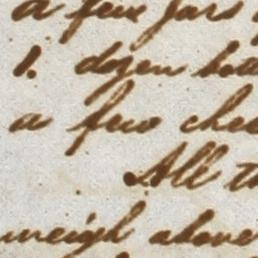 a few Jars
1. dozen bott
a few chee
All th
weigh above